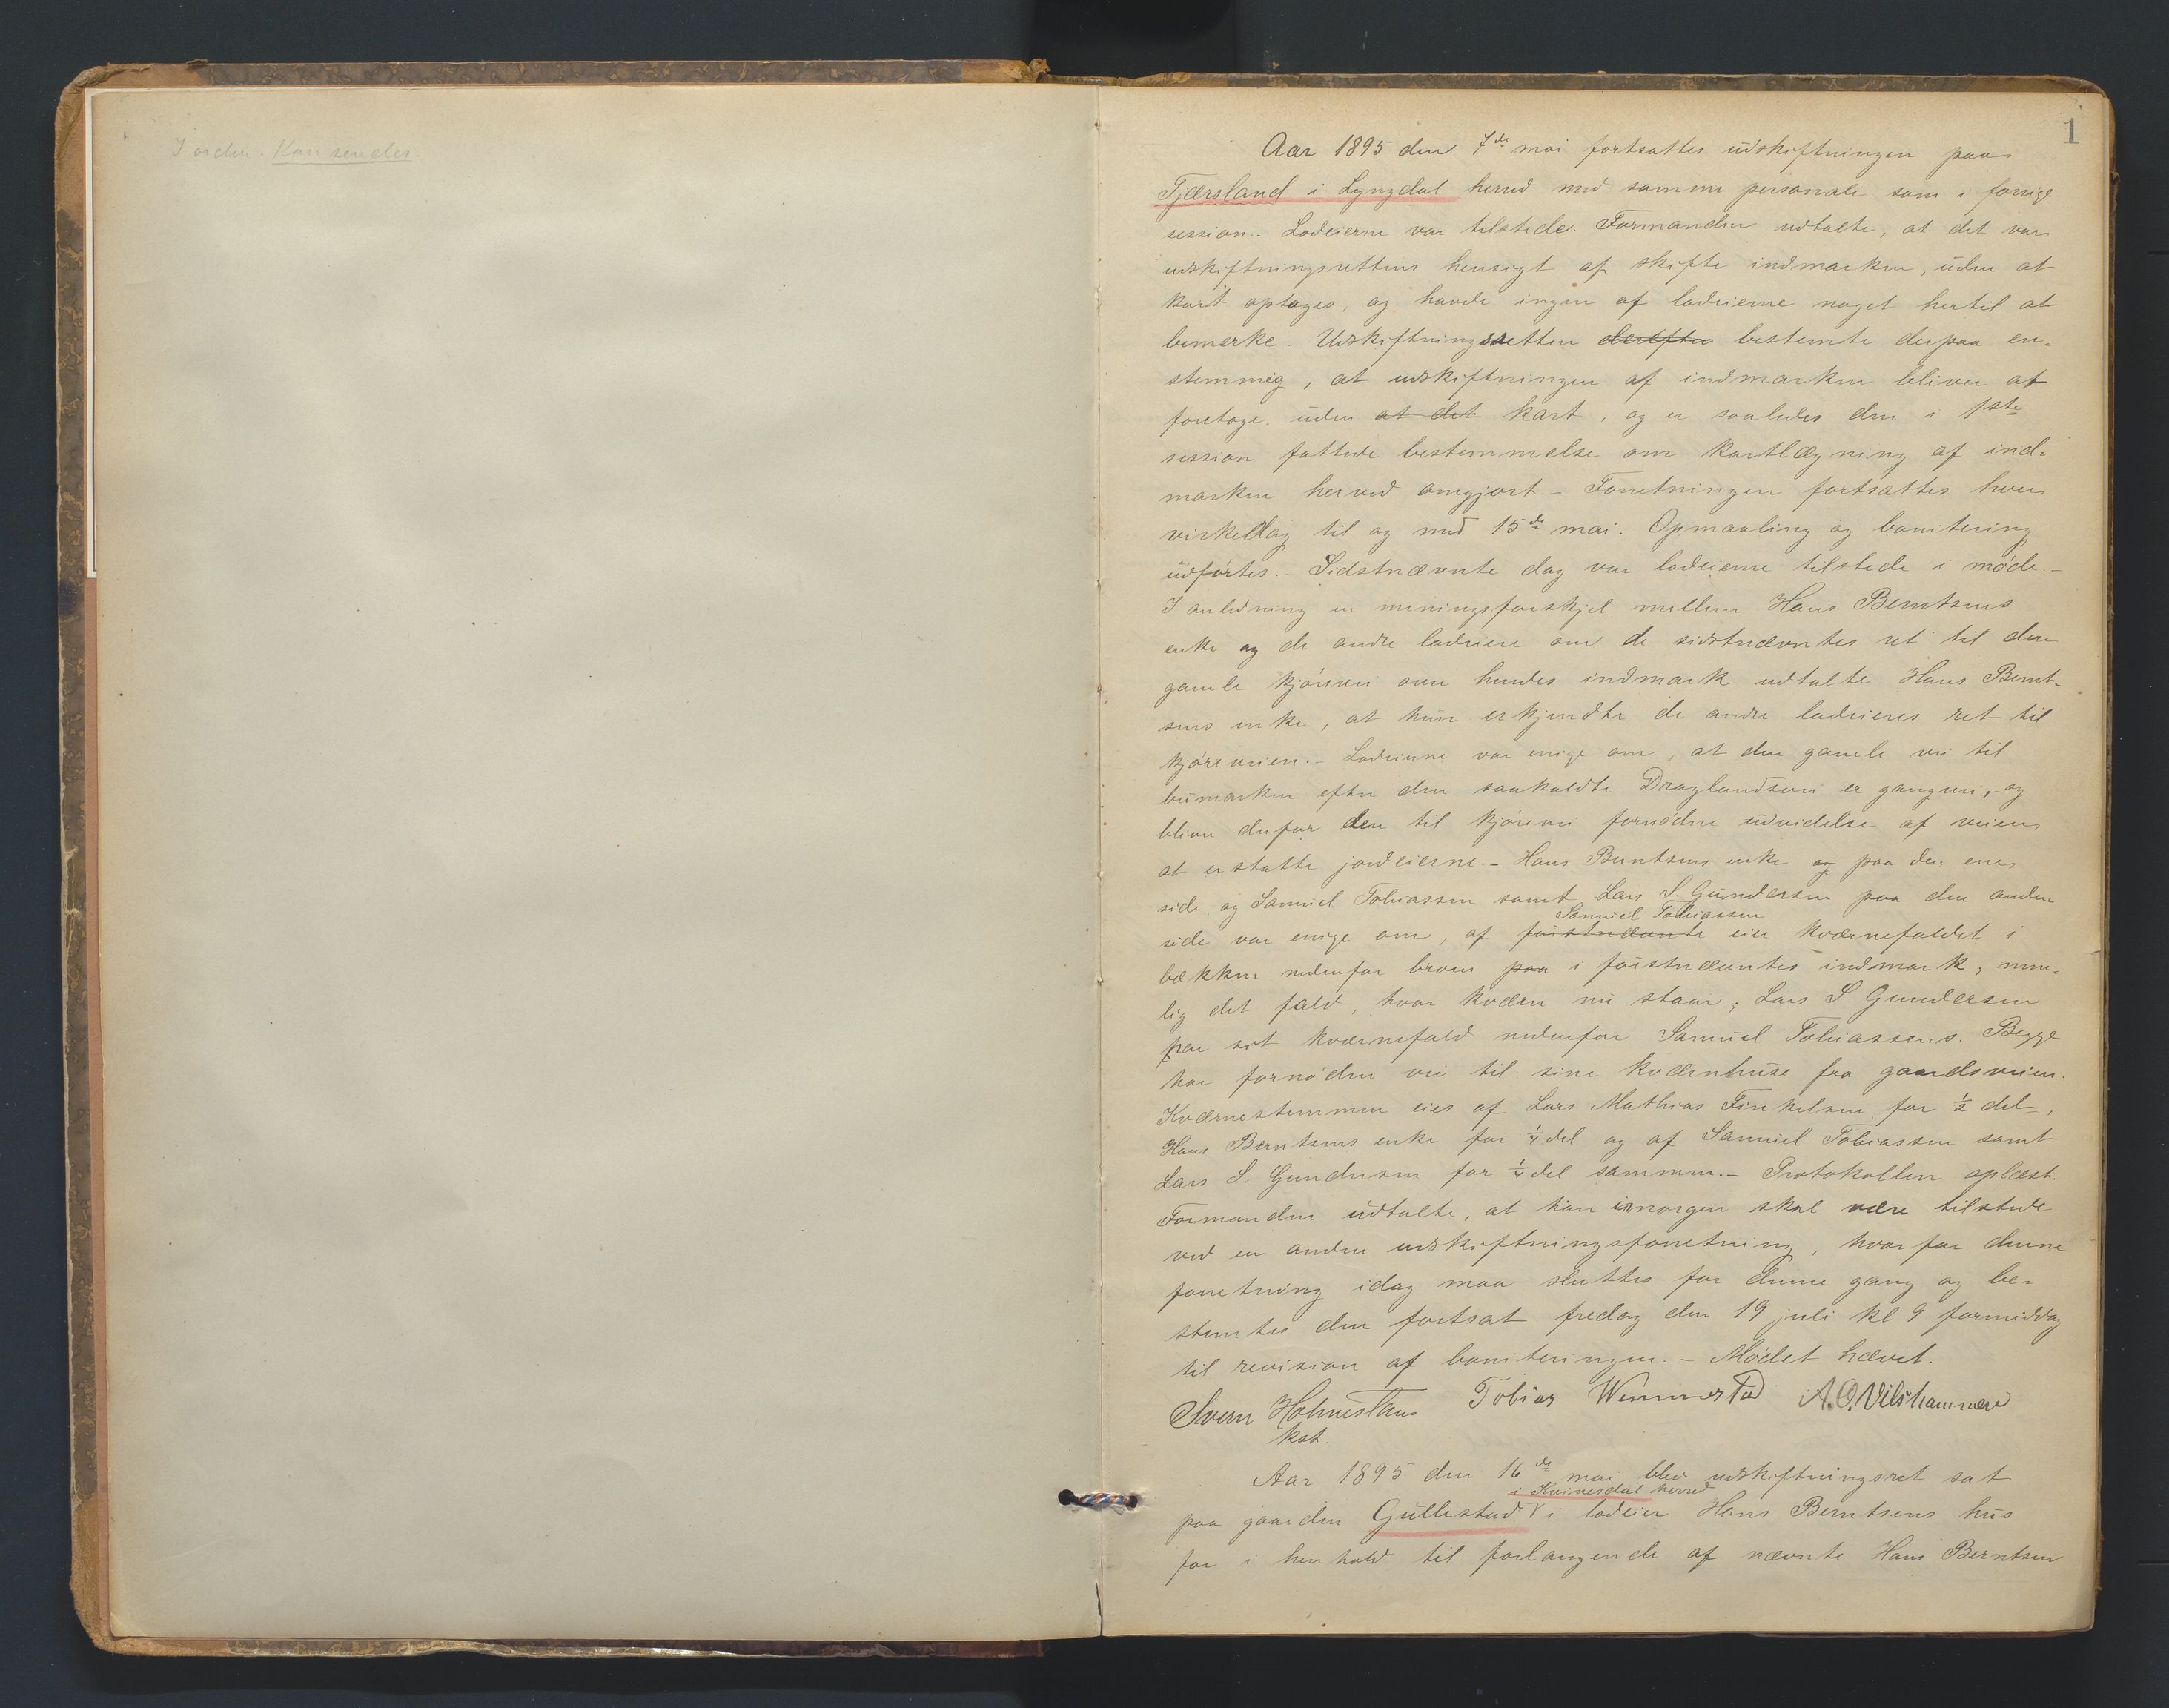 I orden. Kan sendes.
1
Aar 1895 den 7de mai fortsattes udskiftningen paa
Tjærsland i Lyngdal herred med samme personale som i forrige
session. Lodeierne var tilstede. Formanden udtalte, at det var
udskiftningsrettens hensigt at skifte indmarken, uden at
kart optages, og havde ingen af lodeierne noget hertil at
bemerke. Udskiftningsretten derefter bestemte derpaa en-
stemmig, at udskiftningen af indmarken bliver at
foretage uden at det kart, og er saaledes den i 1ste
session fattede bestemmelse om kartlægning af ind-
marken herved omgjort. - Forretningen fortsattes hver
virkedag til og med 15de mai. Opmaaling og bonitering
udførtes. - Sidstnævnte dag var lodeierne tilstede i møde. -
I anledning en meningsforskjel mellem Hans Berntsens
enke og de andre lodeiere om de sidstnævntes ret til den
gamle kjørevei over hendes indmark udtalte Hans Bernt-
sens enke, at hun erkjendte de andre lodeieres ret til
kjøreveien. - Lodeierne var enige om, at den gamle vei til
bumarken efter den saakaldte Draglandsvei er gangvei, og
bliver derfor den til kjørevei fornødne udvidelse af veien
at erstatte jordeierne. - Hans Berntsens enke og paa den ene
side og Samuel Tobiassen samt Lars S. Gundersen paa den anden
Samuel Tobiassen
side var enige om, at førstnævnte eier kværnefaldet i
bækken nedenfor broen paa i førstnævntes indmark, nem-
lig det fald, hvor kværn nu staar; Lars S. Gundersen
har sit kværnefald nedenfor Samuel Tobiassens. Begge
har fornøden vei til sine kværnhuse fra gaardsveien.
Kværnestemmen eies af Lars Mathias Finkelsen for ½ del,
Hans Berntsens enke for ¼ del og af Samuel Tobiassen samt
Lars S. Gundersen for ¼ del sammen. - Protokollen oplæst.
Formanden udtalte, at han imorgen skal være tilstede
ved en anden udskiftningsforretning, hvorfor denne
forretning idag maa sluttes for denne gang og be-
stemtes den fortsat fredag den 19 juli kl 9 formiddag
til revision af boniteringen. - Mødet hævet.
Svein Holmestans Tobias Wemmestad A.O. Vilshammer
kst.
Aar 1895 den 16de mai blev udskiftningsret sat
i Kvinesdal herred
paa gaarden Gullestad i lodeier Hans Berntsens hus
for i henhold til forlangende af nævnte Hans Berntsen